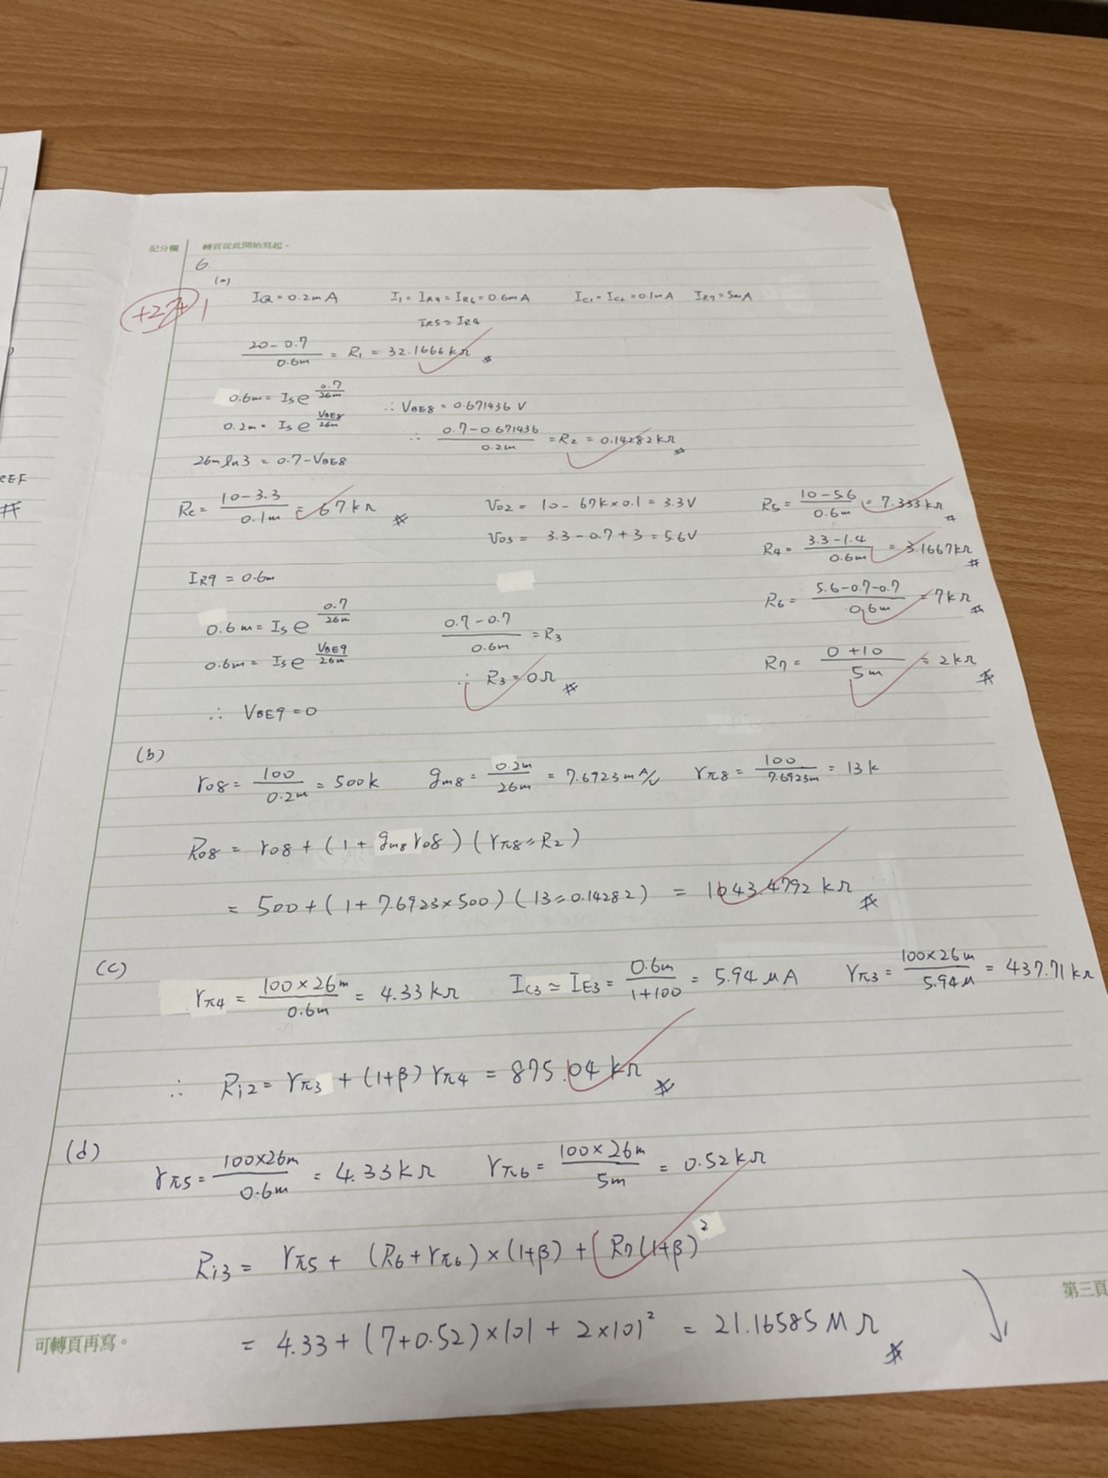 記分欄 轉頁從此開始寫起。
6
(a)
+27
1
IQ = 0.2mA I1 = IR4 = IR6 = 0.6mA IC1 = IC2 = 0.1mA IR7 = 5mA
IR5 = IR4
(20-0.7)/0.6m = R1 = 32.1666kΩ #
0.6m = Is e^(0.7/26m)
0.2m = Is e^(VBE8/26m)
∴ VBE8 = 0.671436 V
∴ (0.7-0.671436)/0.2m = R2 = 0.14282kΩ #
26m ln3 = 0.7-VBE8
Rc = (10-3.3)/0.1m = 67kΩ #
Vo2 = 10 - 67k×0.1 = 3.3V
Vo3 = 3.3-0.7+3 = 5.6V
R5 = (10-5.6)/0.6m = 7.333kΩ #
R4 = (3.3-1.4)/0.6m = 3.1667kΩ #
IR9 = 0.6m
0.6m = Is e^(0.7/26m)
0.6m = Is e^(VBE9/26m)
(0.7-0.7)/0.6m = R3
∴ R3 = 0Ω #
R6 = (5.6-0.7-0.7)/0.6m = 7kΩ #
R7 = (0+10)/5m = 2kΩ #
∴ VBE9 = 0
(b)
ro8 = 100/0.2m = 500k gm8 = 0.2m/26m = 7.6923mA/V rπ8 = 100/7.6923m = 13k
Ro8 = ro8 + (1 + gm8 ro8)(rπ8 // R2)
= 500 + (1 + 7.6923×500)(13 // 0.14282) = 1043.4792 kΩ #
(c)
rπ4 = (100×26m)/0.6m = 4.33kΩ IC3 ≃ IE3 = 0.6m/(1+100) = 5.94 μA rπ3 = (100×26m)/5.94μ = 437.71kΩ
∴ Ri2 = rπ3 + (1+β)rπ4 = 875.04 kΩ #
(d)
rπ5 = (100×26m)/0.6m = 4.33kΩ rπ6 = (100×26m)/5m = 0.52kΩ
Ri3 = rπ5 + (R6+rπ6)×(1+β) + R7(1+β)²
= 4.33 + (7+0.52)×101 + 2×101² = 21.16585 MΩ #
第三頁
可轉頁再寫。
REF
#